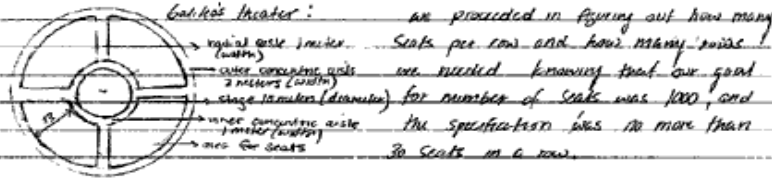 Galileo's theater:
radial aisle 1 meter
(width)
outer concentric aisle
2 meters (width)
stage 10 meters (diameter)
inner concentric aisle
1 meter (width)
area for seats
13
we proceeded in figuring out how many
seats per row and how many rows
we needed knowing that our goal
for number of seats was 1000, and
the specification was no more than
30 seats in a row.